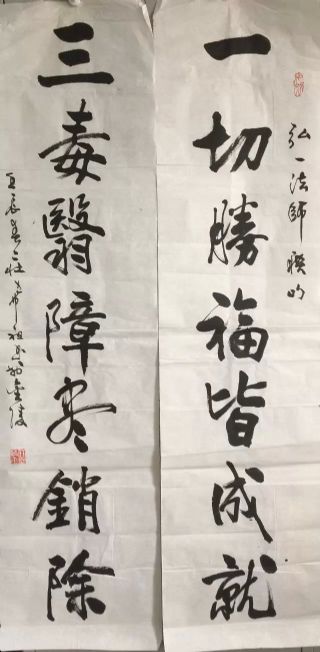 一切勝福皆成就
弘一法師聯句
三毒翳障尽銷除